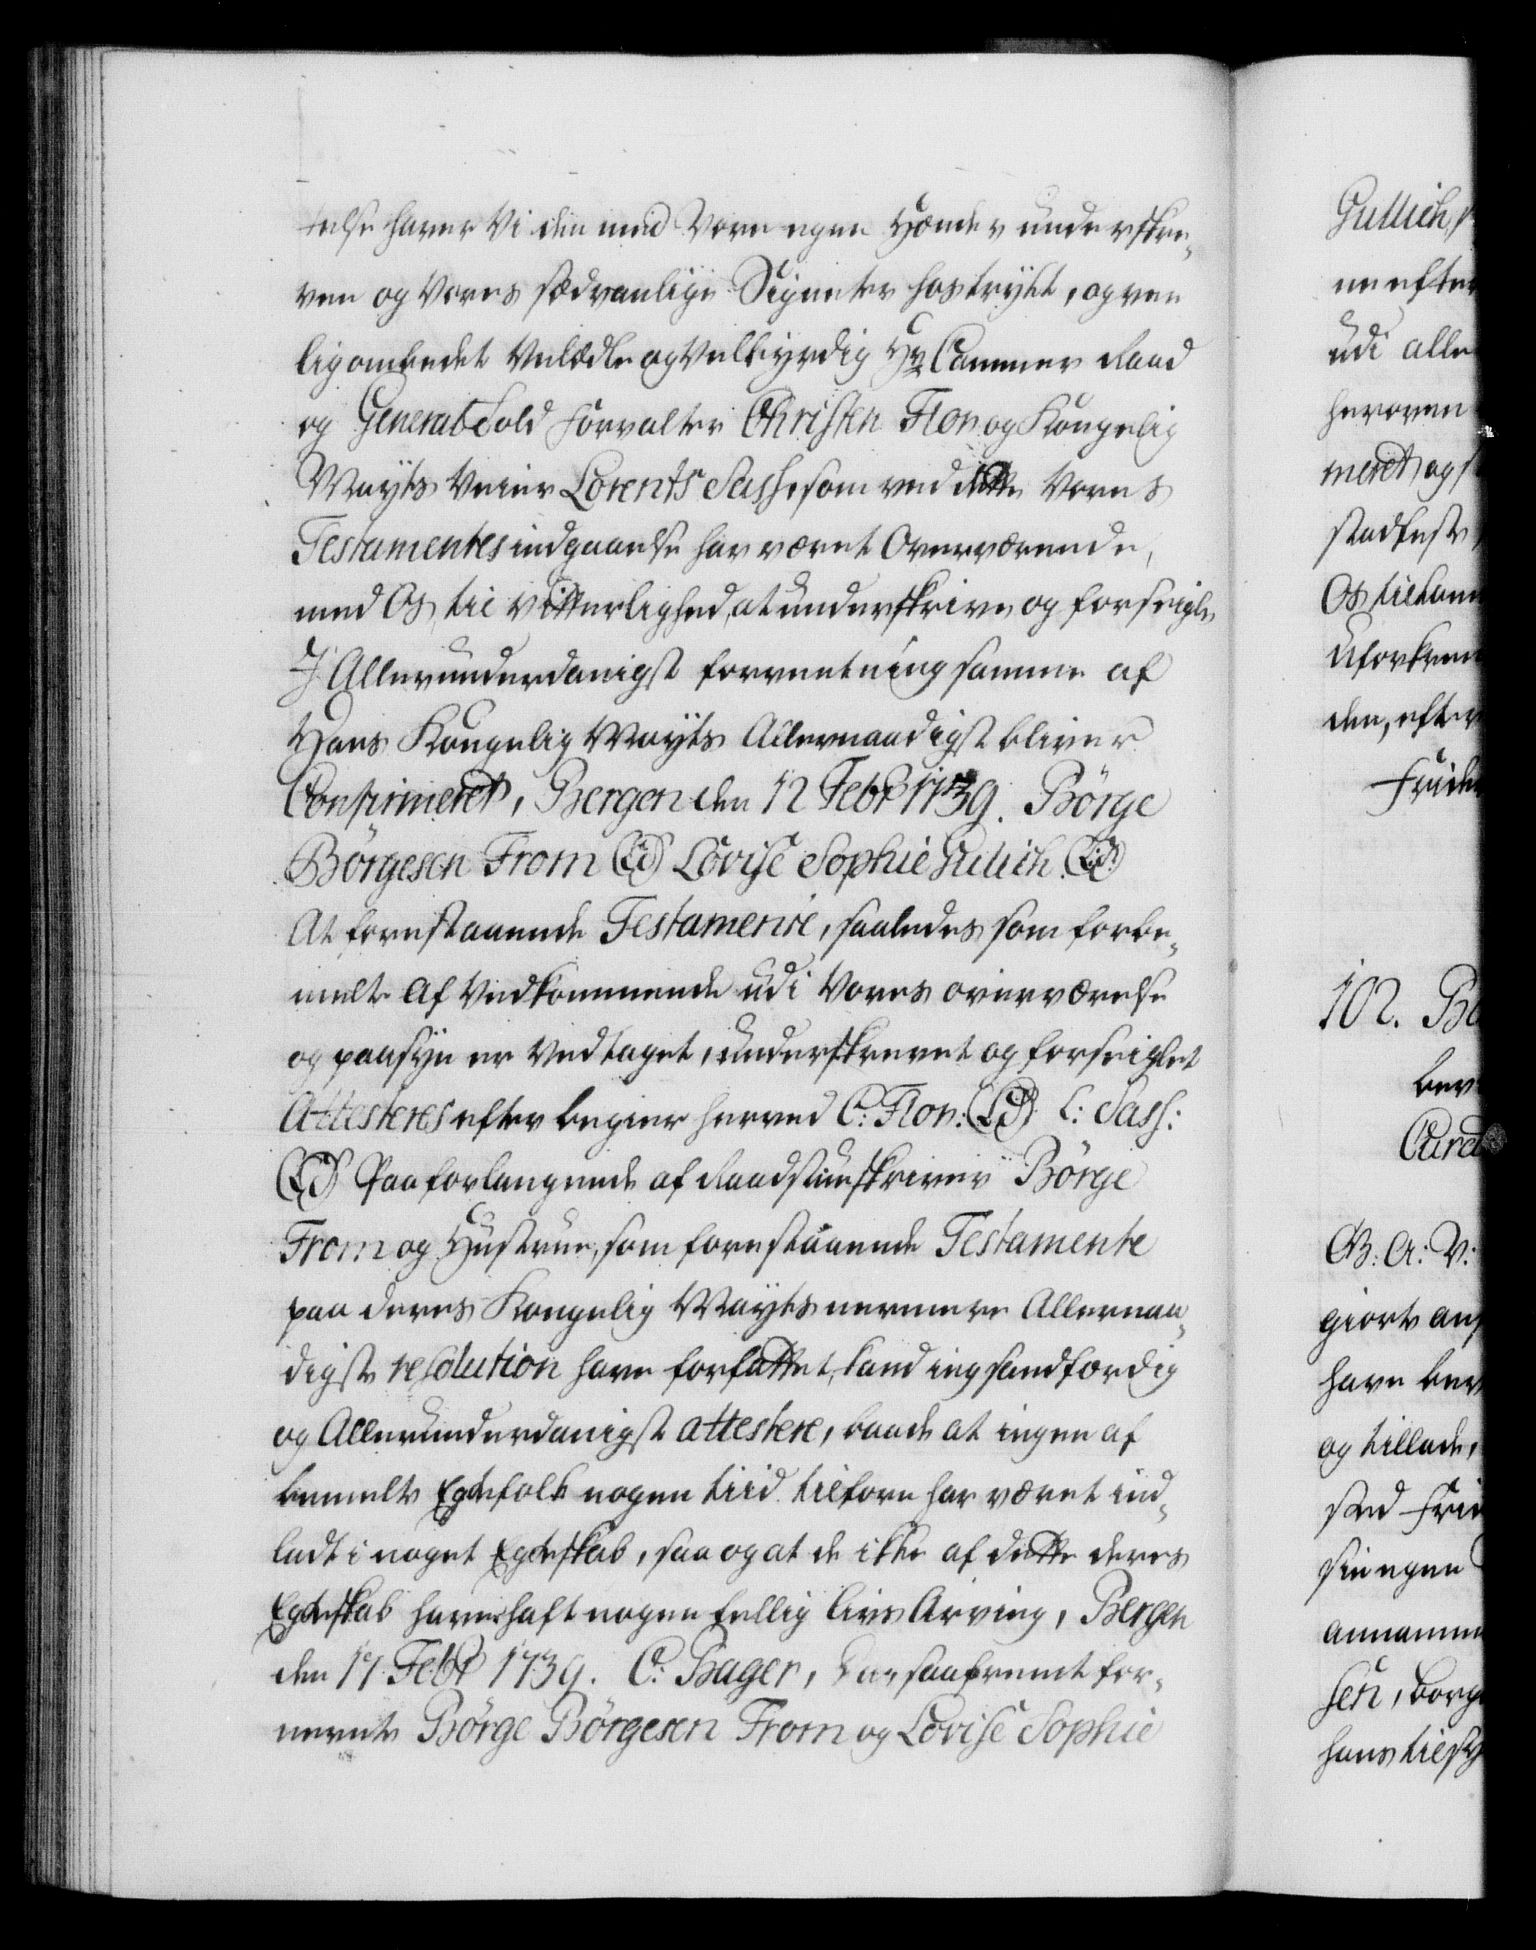 telse haver Vi den med Vore egne Hænder underskre,
ven og Vores sædvanlige Signeter hostrykt, og ven
lig ombedet Velædle og Velbyrdig Hr Cammer Raad
og General Told Forvalter Christen Flor og Kongelig
Mayts Veier Lorents Sass, som ved dette Vores
Testamentes indgaaelse har været Overværende,
med Os til vitterlighed, at underskrive og forseigle,
J Allerunderdanigst forventning samme af
Hans Kongelig Mayts Allernaadigst bliver
Confirmeret, Bergen den 12 Febr 1739. Börge
Börgesen From (LS) Lovise Sophie Gullich (LS)
At forestaaende Testamente, saaledes som forbe,
melt af Vedkommende udi Vores overværelse
og paasyn er Vedtaget, underskrevet og forseiglet
Attesteres efter begier herved C: Flor: (LS) L: Sass:
(LS) Paa forlangende af Raadstueskriver Börge
From og Hustrue, som forestaaende Testamente
paa deres Kongelig Mayts nermere Allernaa,
digste resolution have forfattet, kand ieg sandfærdig
og Allerunderdanigst attestere, baade at ingen af
bemelte Egtefolk nogen tiid tilforn har været ind,
ladt i noget Egteskab, saa og at de ikke af dette deres
Egteskab haver haft nogen fellig Livs Arving, Bergen
den 17 Febr 1739. C: Bager, Da, saafremt for,
nevnte Börge Börgesen From og Lovise Sophie
Gullich,
ne efter
udi alle
heroven
meret og
stadfeste
Os tilkom
Uforkren
den, efter
Fride
102. Ba
bev
Cura
G: A: V:
giort an
have bev
og tillade,
sted Frid
sin egen
annamme
sen, borg
hans tilsy